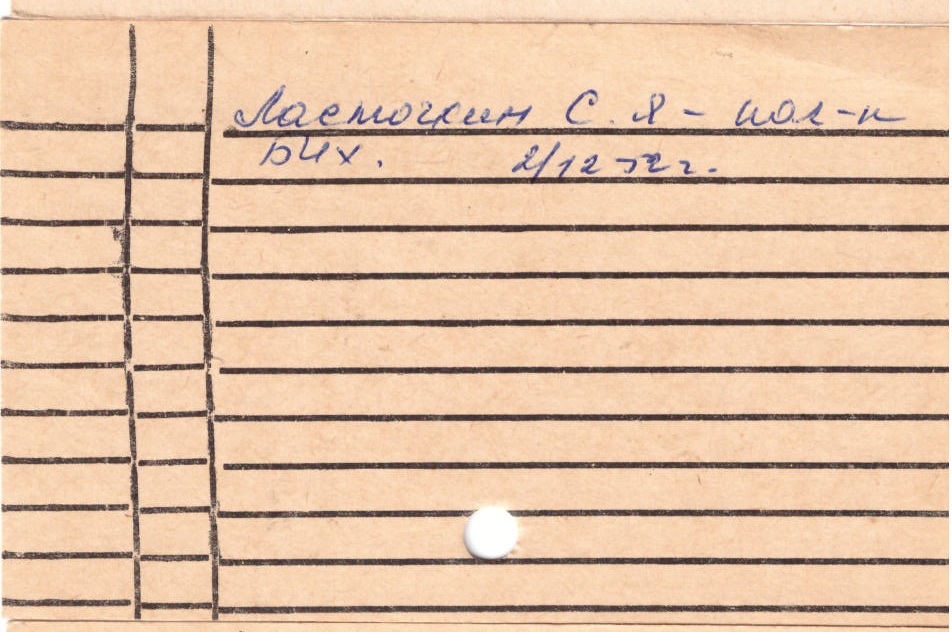 Ласточкин С. Я - пол-к
БЧх. 2/12-52 г.